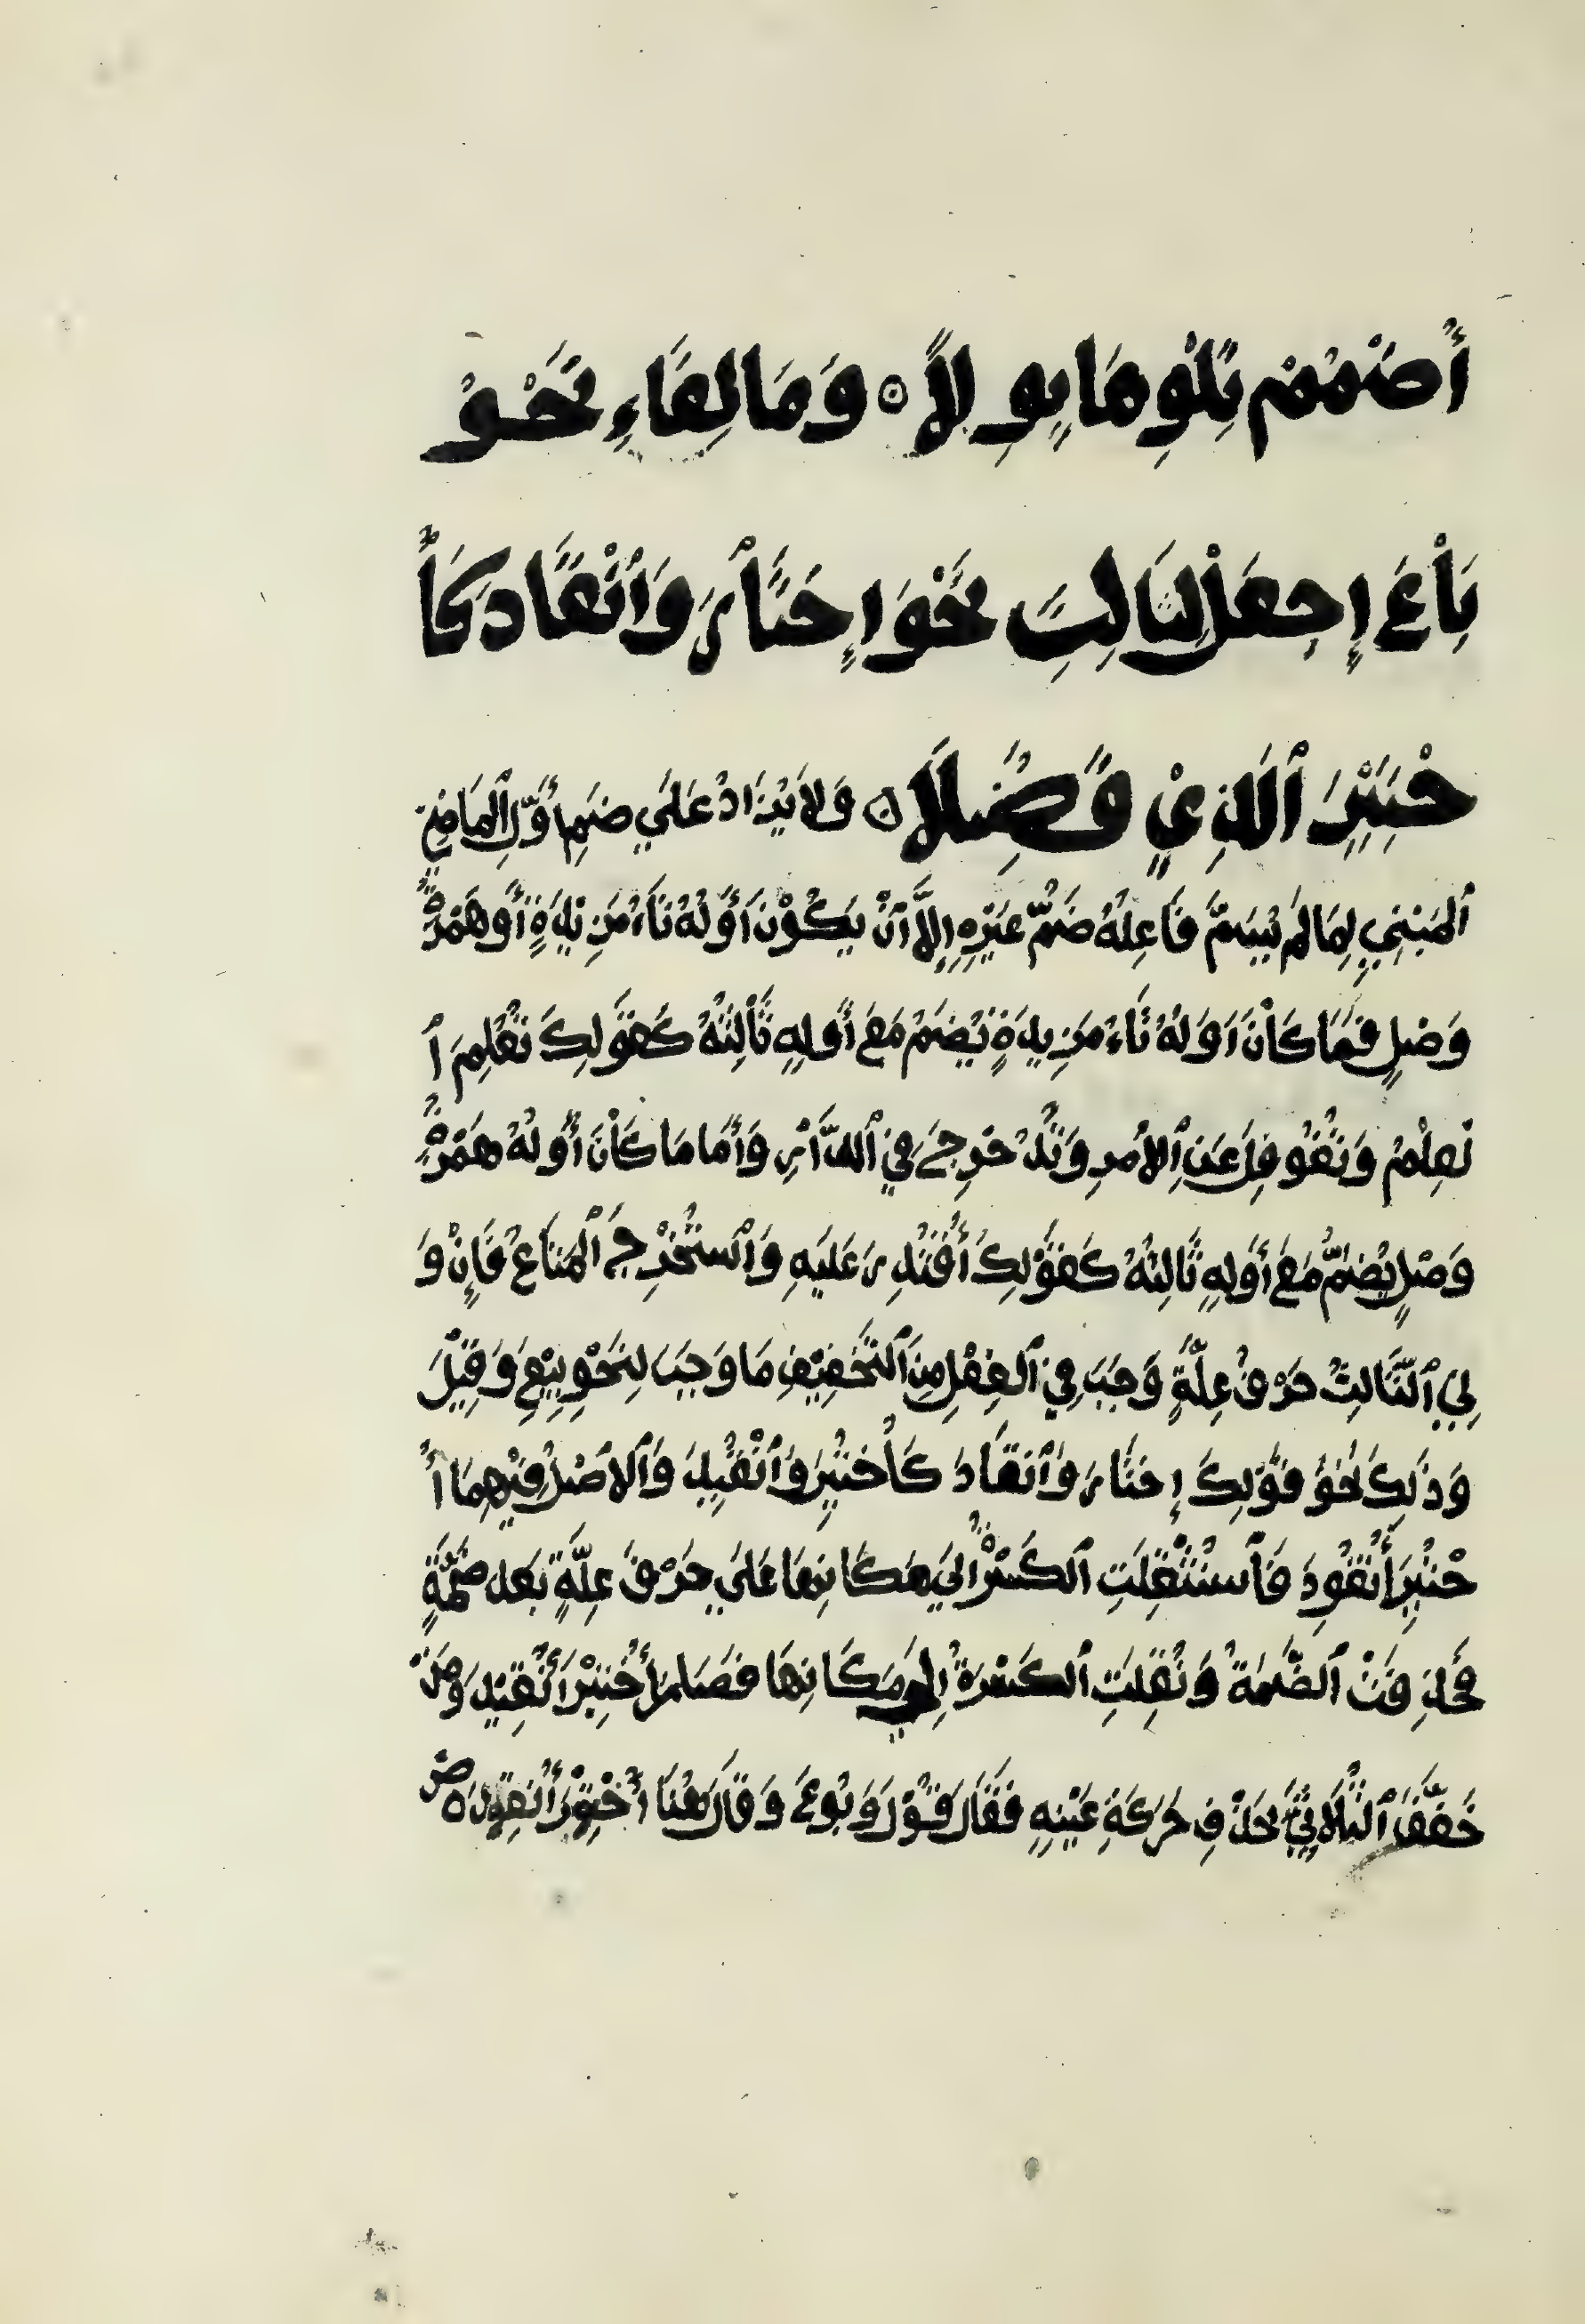 أُضْمُمْ تِلْوِهَا بِوِلاً ۞ وَمَا لِفَاءِ نَحْوُ
بَاْعَ إِجْعَلْ لِثَالِثِ نَحْوَ إِخْتَاْرَ وَٱنْقَادَ كَأُ
خْتِيْرَ ٱلَّذِيْ فَضُلَا ۞ وَلاَ يُزَادُ عَلَي ضَمِ أَوَّلِ ٱلْمَاضِيْ
ٱلْمَبْنِي لِمَا لَمْ يُسَمَّ فَاعِلُهُ ضَمُّ غَيْرِهِ إِلَّا أَنْ يَكُوْنَ أَوَّلُهُ تَاءً مَزِيْدَةً أَوْ هَمْزَةُ
وَصْلٍ فَمَا كَاْنَ أَوَلُهُ تَاءُ مَزِيدَةٍ يُضَمُ مَعَ أَوَّلِهِ ثَاْلِثُهُ كَقَوْلِكَ تُعُلِمَ ٱ
لْعِلْمُ وَتُغُوفِلَ عَنِ ٱلأَمْرِ وَتُدُحْرِجَ فِي ٱلدَّاْرِ وَأَمَا مَا كَاْنَ أَوَّلُهُ هَمْزَةُ
وَصْلٍ يُضَمُّ مَعَ أَوَلِهِ ثَالِثُهُ كَقَوْلِكَ أُقْتُدِرَ عَلَيْهِ وَٱسْتُخْرِجَ ٱلْمَتَاعُ فَإِنْ وَ
لِيَ ٱلثَّالِثَ حَرْفُ عِلَّةٍ وَجَبَ فِي ٱلْفِعْلِ مِنَ ٱلتَّخْفِيْفِ مَا وَجَبَ لِنَحْوِ بِيْعَ وَقِيْلَ
وَذَلِكَ نَحْوُ قَوْلِكَ إِخْتَارَ وَٱنْقَادَ كَأُخْتِيْرَ وَٱنْقِيْدَ وَٱلأَصْلُ فِيْهِمَا أُ
خْتُيِرَ أُنْقُوِدَ فَٱسْتُثْقِلَتِ ٱلْكَسْرَةُ إِلَيَ مَكَانِهَا عَلَي حَرْفِ عِلَّةٍ بَعْدَ ضَمَّةٍ
فَحُذِفَتْ ٱلضَّمَةُ وَنُقِلَتِ ٱلْكَسْرَةُ إِلَي مَكَانِهَا فَصَارَ أُخْتِيْرَ أُنْقِيْدَ وَمَنْ
خَفَّفَ ٱلثُّلَاثِيَّ بِحَذْفِ حَرَكَةِ عَيْنِهِ فَقَالَ قُوْلَ وَبُوعَ وَقَالَ هُنَا أُخْتُوْرَ أُنْقُوْدَ ه ص